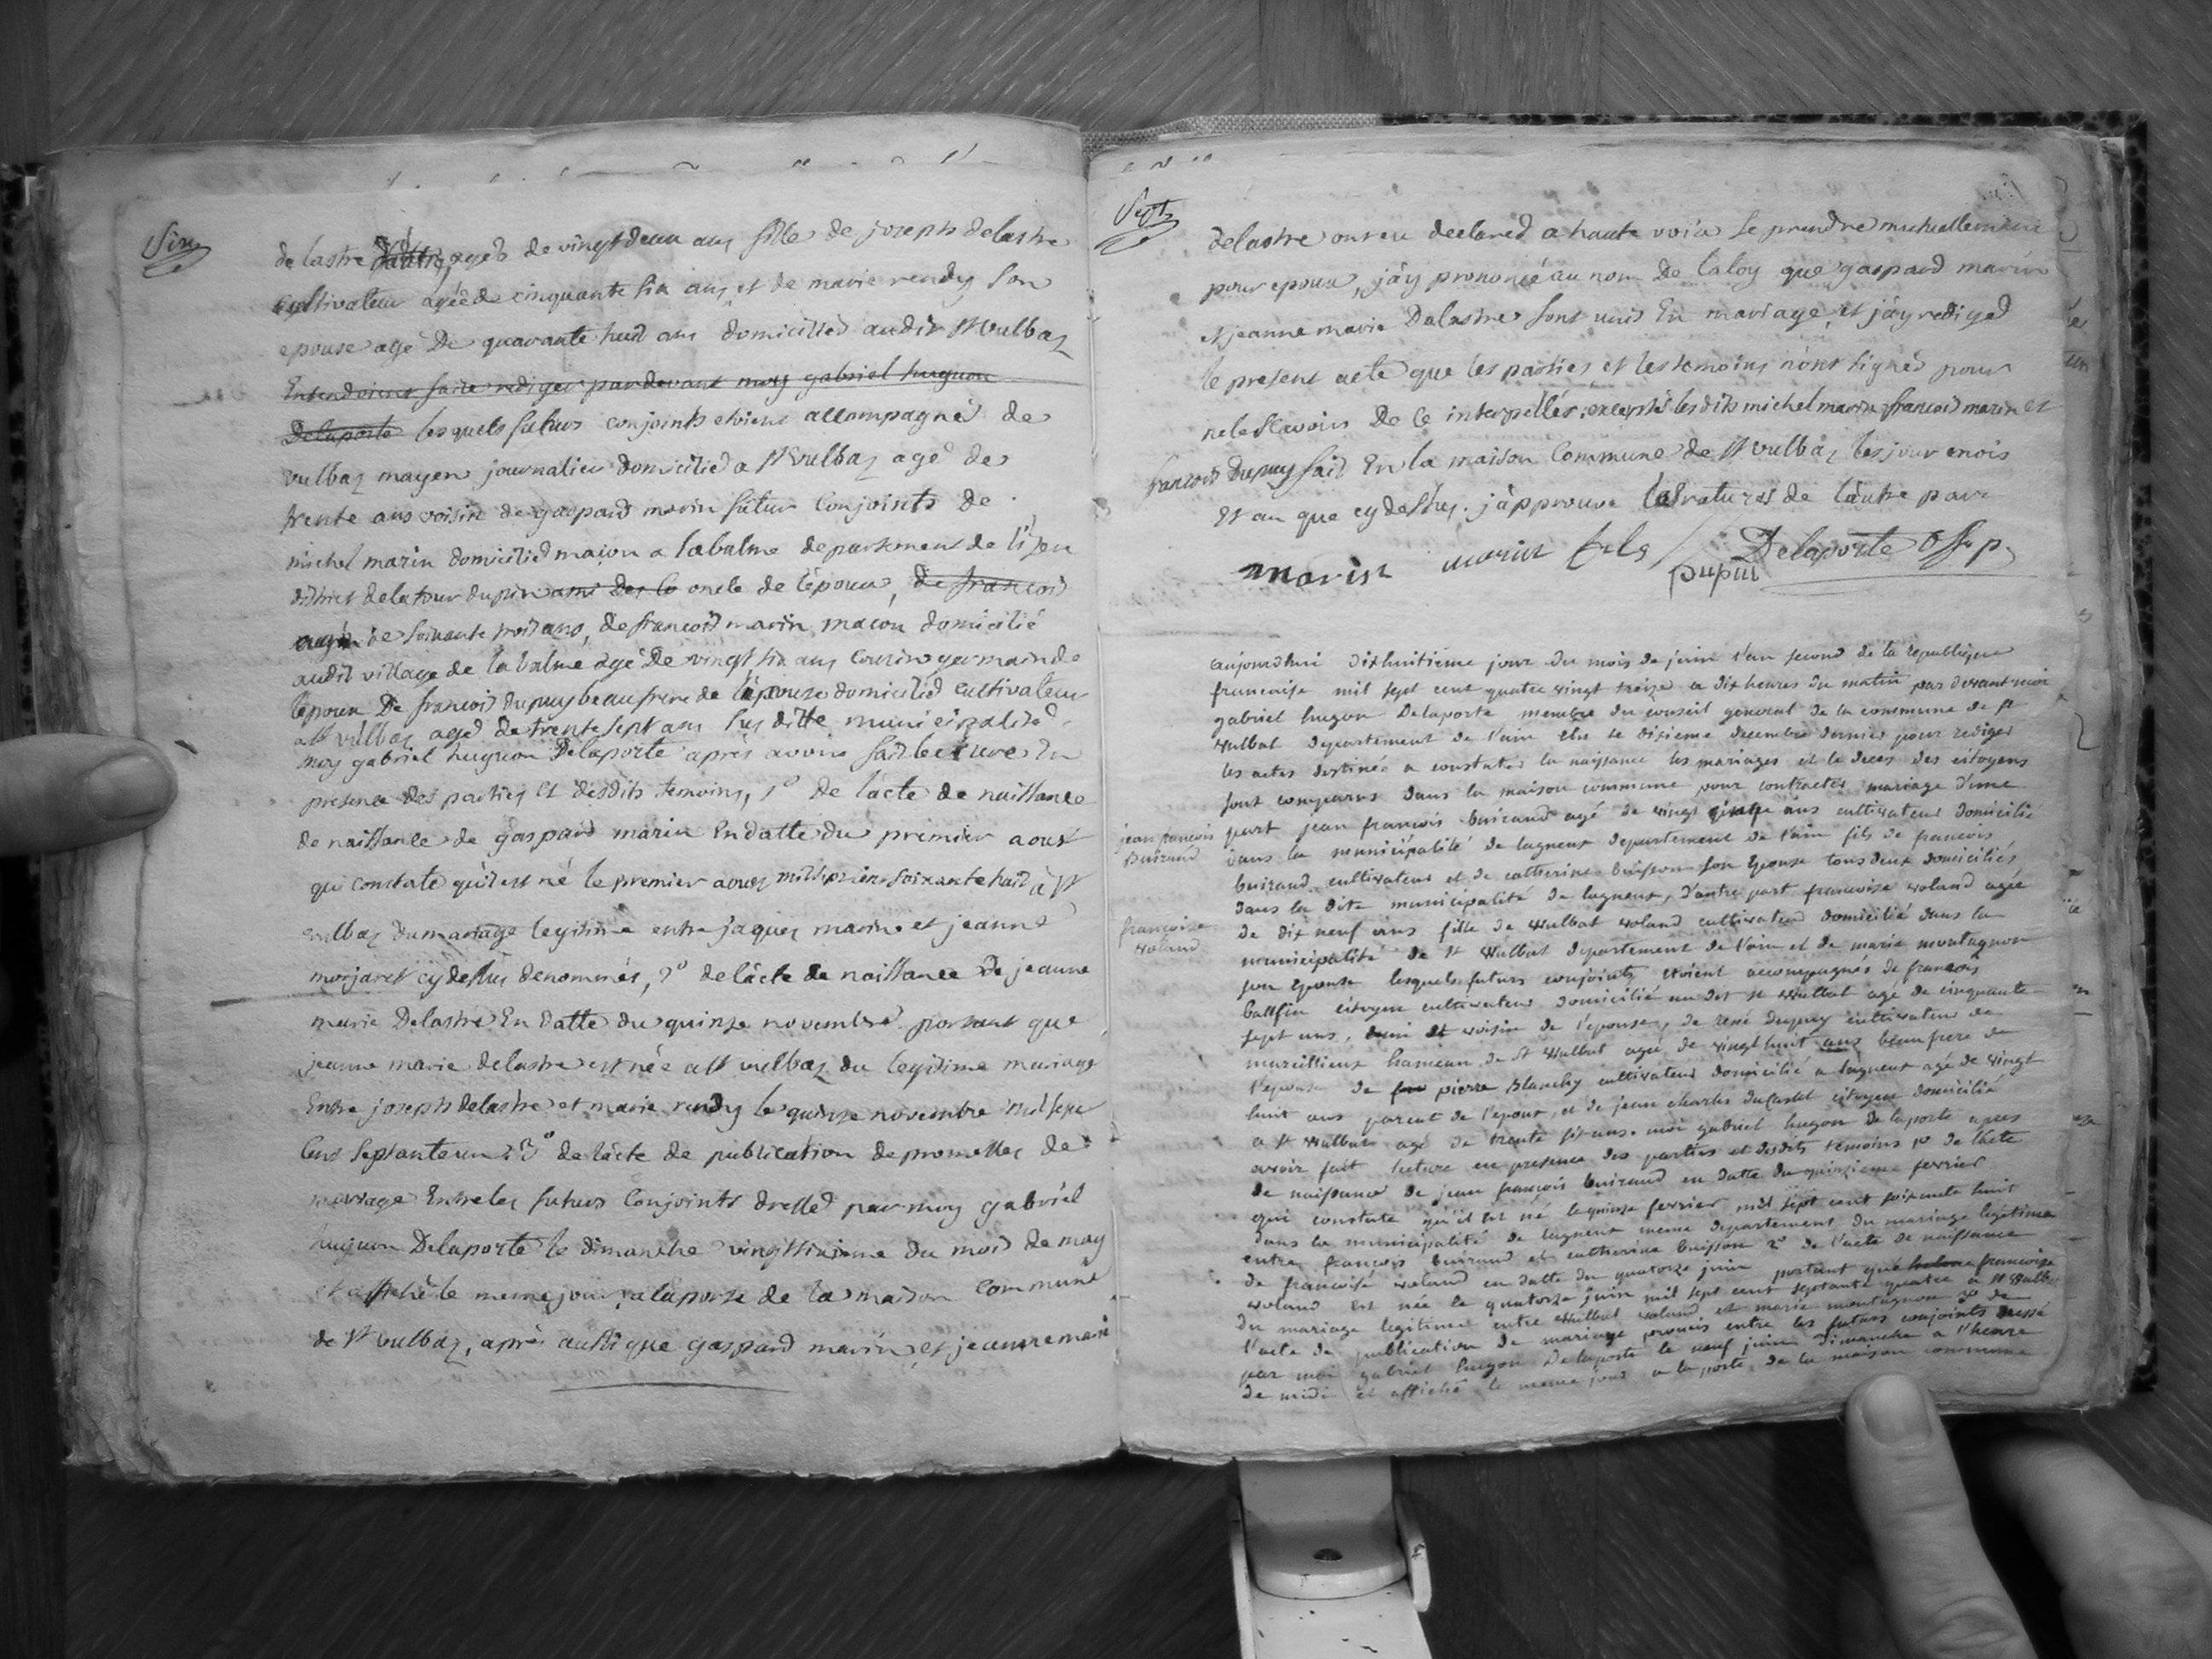 Six
de lastre agéé de vingt deux ans fille de joseph delastre
cultivateur agéé de cinquante six ans et de marie rendy son
epouse agé De quarante huit ans domicilied audit St Vulbaz
Entendoient faire rediger pardevant moy gabriel huguon
Delaporte lesquels futurs conjoints etoient accompagné de
vulbaz mayen journalier domicilied a St Vulbaz agé de
trente ans voisin de gaspard marin futur Conjoints de
michel marin domicilied maçon a labalme departement de l'izer
district delatour dupin ami oncle de l'époux, de françois
agé de soixante trois ans, de françois marin maçon domicilié
audit village de la balme agé De vingt six ans Cousin germain de
l'epoux De françois dupuy beaufrere de l'epouse domicilied cultivateur
a St Vulbaz aged de trente sept ans sus ditte municipalited
moy gabriel huguon Delaporte apres avoir fait lecture En
presence des parties et desdits temoins, 1º De l'acte de naissance
de naissance de gaspard marin En datte du premier aoust
qui constate qu'il est né le premier aoust mil sept cens soixante huit à St
vulbaz du mariage legitime entre jaques marin et jeanne
monjaret cy dessus denommés, 2º de l'acte de naissance de jeanne
marie Delastre En datte du quinze novembre portant que
jeanne marie delastre est née a St vulbaz du legitime mariage
Entre joseph delastre et marie rendy le quinze novembre mil sept
Cens septante un 3º de l'acte de publication de promesses de
mariage Entre les futurs Conjoints dressed par moy gabriel
huguon Delaporte le dimanche vingt sixieme du mois de may
et affiché le meme jour a la porte de la maison Commune
de St vulbaz, après aussi que gaspard marin et jeanne marie
Sept
delastre ont eu declared a haute voix se prendre mutuellement
pour epoux, j'ay prononcé au nom De la loy que gaspard marin
et jeanne marie Delastre sont unis En mariage, et j'ay rediged
le present acte que les parties et les temoins n'ont signed pour
ne le scavoir De ce interpellés, exceptés les dits michel marin françois marin et
francois Dupuy fait En la maison Commune de St vulbaz les jour mois
Et an que cy dessus. j'approuve les ratures de l'autre par
marin marin fils Delaporte off p
Dupui
aujourdhui dixhuitieme jour du mois de juin l'an second de la republique
francaise mil sept cent quatre vingt treize a dix heures du matin par devant moi
gabriel hugon Delaporte membre du conseil general de la commune de St
Vulbat departement de l'ain elu le dixieme decembre dernier pour rediger
les actes destinés a constater la naissance les mariages et le deces des citoyens
sont comparus dans la maison commune pour contracter mariage d'une
jean francois
Buirand
part jean francois buirand agé de vingt ans cultivateur domicilié
dans la municipalité de lagneux departement de l'ain fils de francois
buirand cultivateur et de catherine buisson son epouse tous deux domiciliés
dans la dite municipalité de lagneux, d'autre part francoise voland agée
francoise
voland
de dix neuf ans fille de Vulbat voland cultivateur domicilié dans la
municipalité de St Vulbat departement de l'ain et de marie montagnon
son epouse lesquels futurs conjoints etoient accompagnés de francois
ballfin citoyen cultivateur domicilié au dit St Vulbat agé de cinquante
sept ans, voisin de l'epouse, de rené dupuy cultivateur de
marcillieux hameau de St Vulbat agé de vingt huit ans beaufrere de
l'epouse de pierre blanchy cultivateur domicilié a lagneux agé de vingt
huit ans parent de l'epoux, et de jean charles ducastel citoyen domicilié
a St Vulbat agé de trente six ans. moi gabriel hugon de laporte apres
avoir fait lecture en presence des parties et desdits temoins 1º de l'acte
de naissance de jean francois buirand en datte du quinzieme fevrier
qui constate qu'il est né le quinze fevrier mil sept cent soixante huit
dans la municipalité de lagneux meme departement du mariage legitime
entre francois buirand et catherine buisson 2º de l'acte de naissance
de francoise voland en datte du quatorze juin portant que francoise
voland est née le quatorze juin mil sept cent septante quatre a St Vulbat
du mariage legitime entre Vulbat voland et marie montagnon 3º de
l'acte de publication de mariage promis entre les futurs conjoints dressé
par moi gabriel hugon Delaporte le neuf juin dimanche a l'heure
de midi et affiché le meme jour a la porte de la maison commune